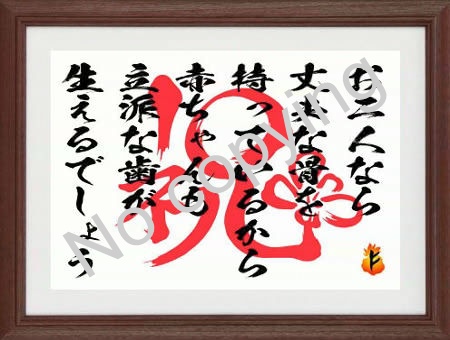 お二人なら
丈夫な骨を
持っているから
赤ちゃんも
立派な歯が
生えるでしょう
祝
No copying